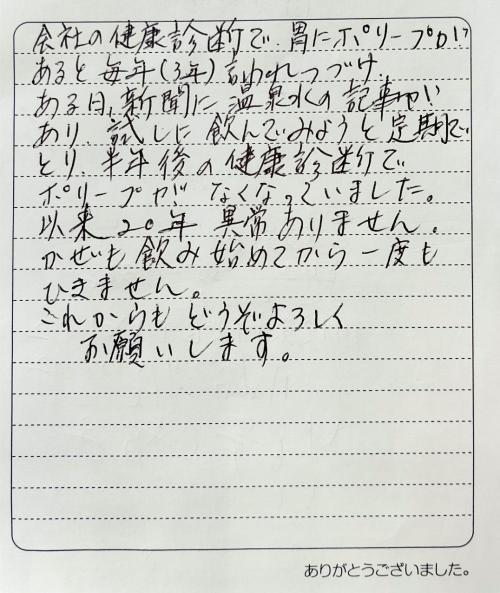 会社の健康診断で胃にポリープが
あると毎年(3年)言われつづけ、
ある日、新聞に温泉水の記事が
あり、試しに飲んでみようと定期で
とり、半年後の健康診断で
ポリープがなくなっていました。
以来20年異常ありません。
かぜも飲み始めてから一度も
ひきません。
これからもどうぞよろしく
お願いします。
ありがとうございました。